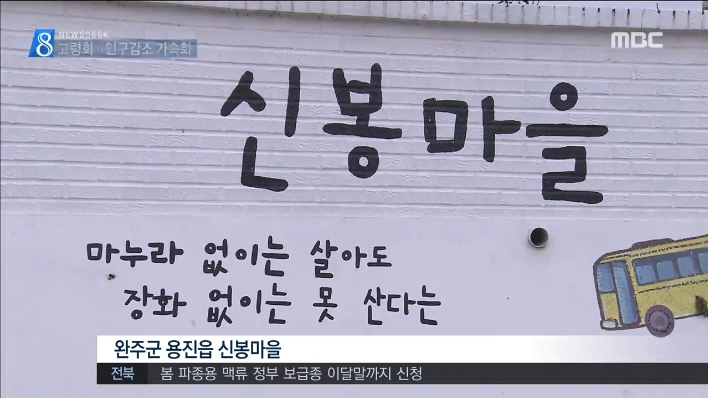 8 NEWSDESK
고령화·인구감소 가속화
MBC
신봉마을
마누라 없이는 살아도
장화 없이는 못 산다는
완주군 용진읍 신봉마을
전북 봄 파종용 맥류 정부 보급종 이달말까지 신청